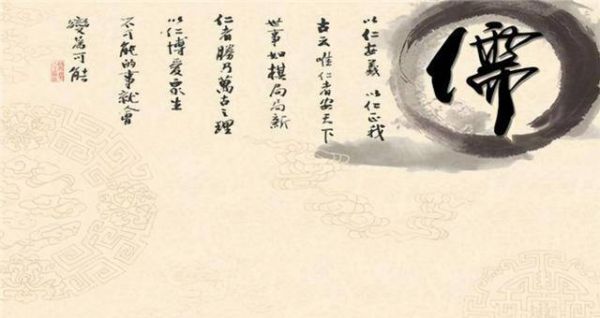 儒
以仁安義 以仁正我
古云唯仁者安天下
世事如棋局局新
仁者勝乃萬古之理
以仁博愛衆生
不可能的事就會
變為可能